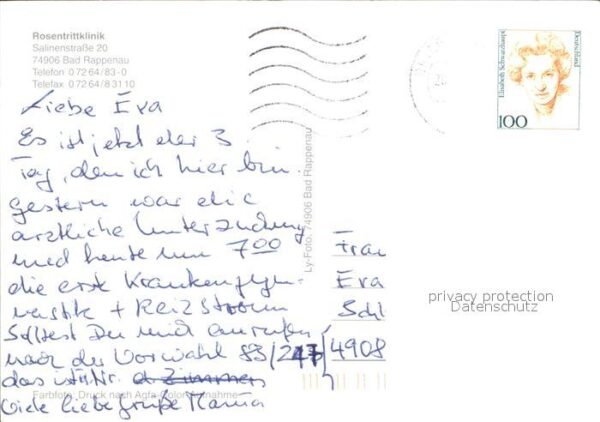 Rosentrittklinik
Salinenstraße 20
74906 Bad Rappenau
Telefon 0 72 64/83-0
Telefax 0 72 64/8 31 10
Elisabeth Schwarzhaupt
Deutschland
100
Liebe Eva
Es ist jetzt der 3.
Tag, den ich hier bin.
Gestern war die
ärztliche Untersuchung
und heute um 7 00
die erste Krankengym-
nastik + Reizstrom
Solltest Du mich anrufen
nach der Vorwahl 83/247/4908
das ist Nr.
Viele liebe Grüße
Ly-Foto, 74906 Bad Rappenau
Frau
Eva
Schl
privacy protection
Datenschutz
Farbfoto: Druck nach Agfa-Color-Aufnahmen